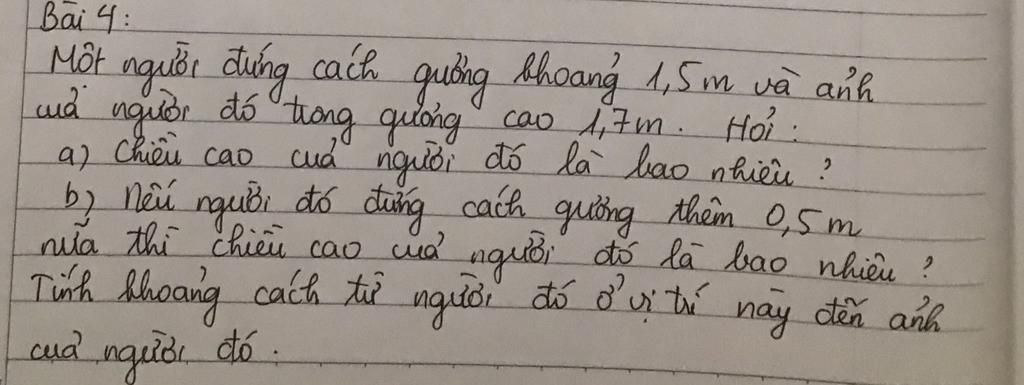 Bài 4:
Một người đứng cách gường khoảng 1,5m và ảnh
cuả người đó trong gường cao 1,7m. Hỏi:
a) Chiều cao cuả người đó là bao nhiêu?
b) Nếu người đó đứng cách gường thêm 0,5m
nữa thì chiều cao cuả người đó là bao nhiêu?
Tính khoảng cách từ người đó ở vị trí này đến ảnh
cuả người đó.